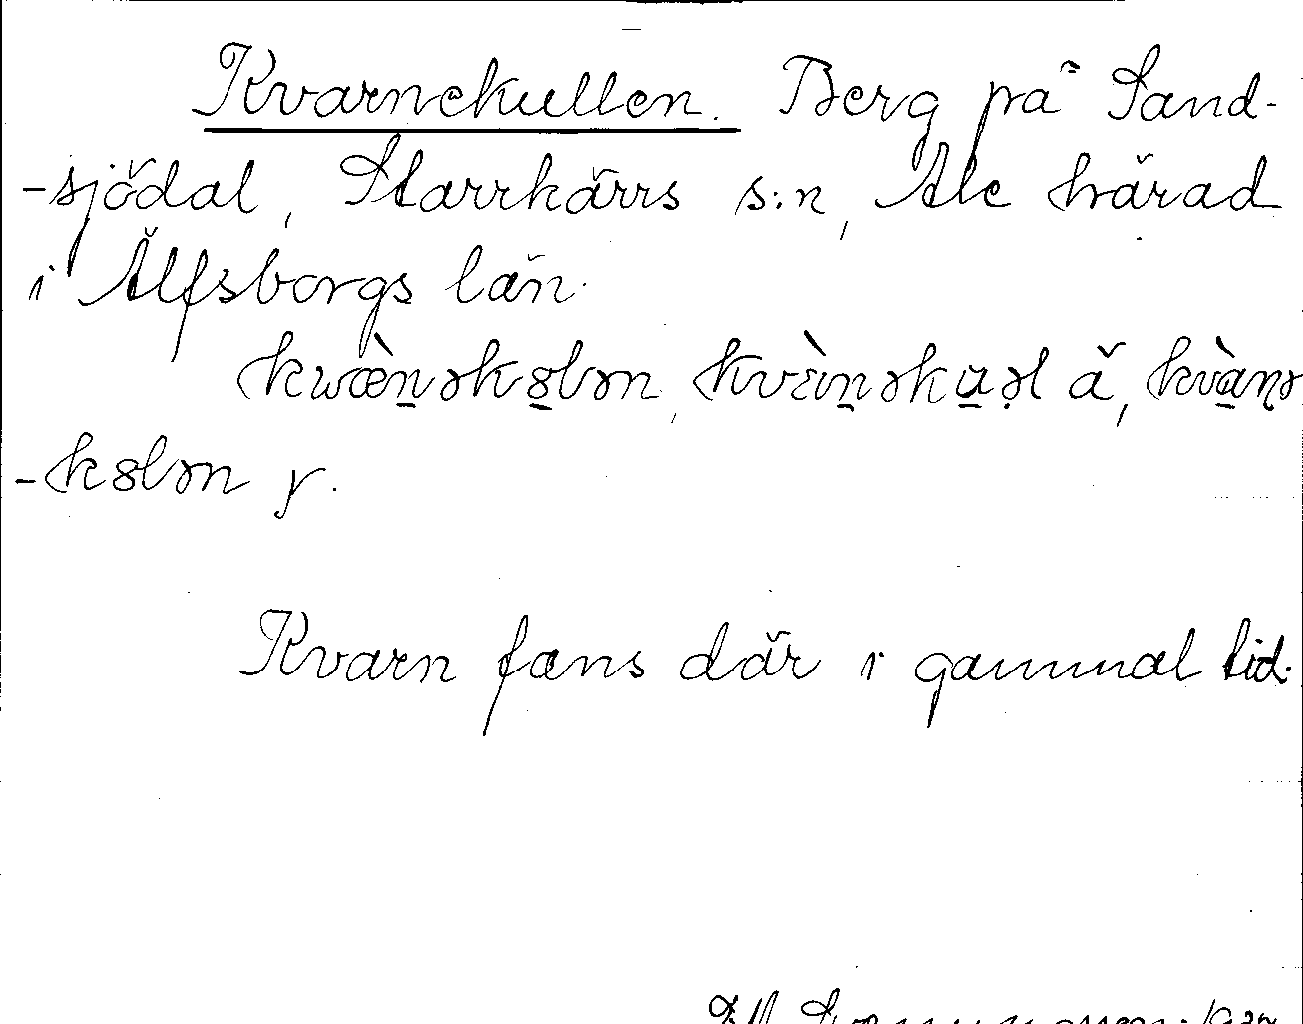 Kvarnekullen. Berg på Sand-
-sjödal, Starrkärrs s:n, Ale härad
i Älfsborgs län.
kwæ̀nəkȣlən, kvɛ̀ɩnəkuəl ä, kvànə
-kȣlən y.
Kvarn fans där i gammal tid.